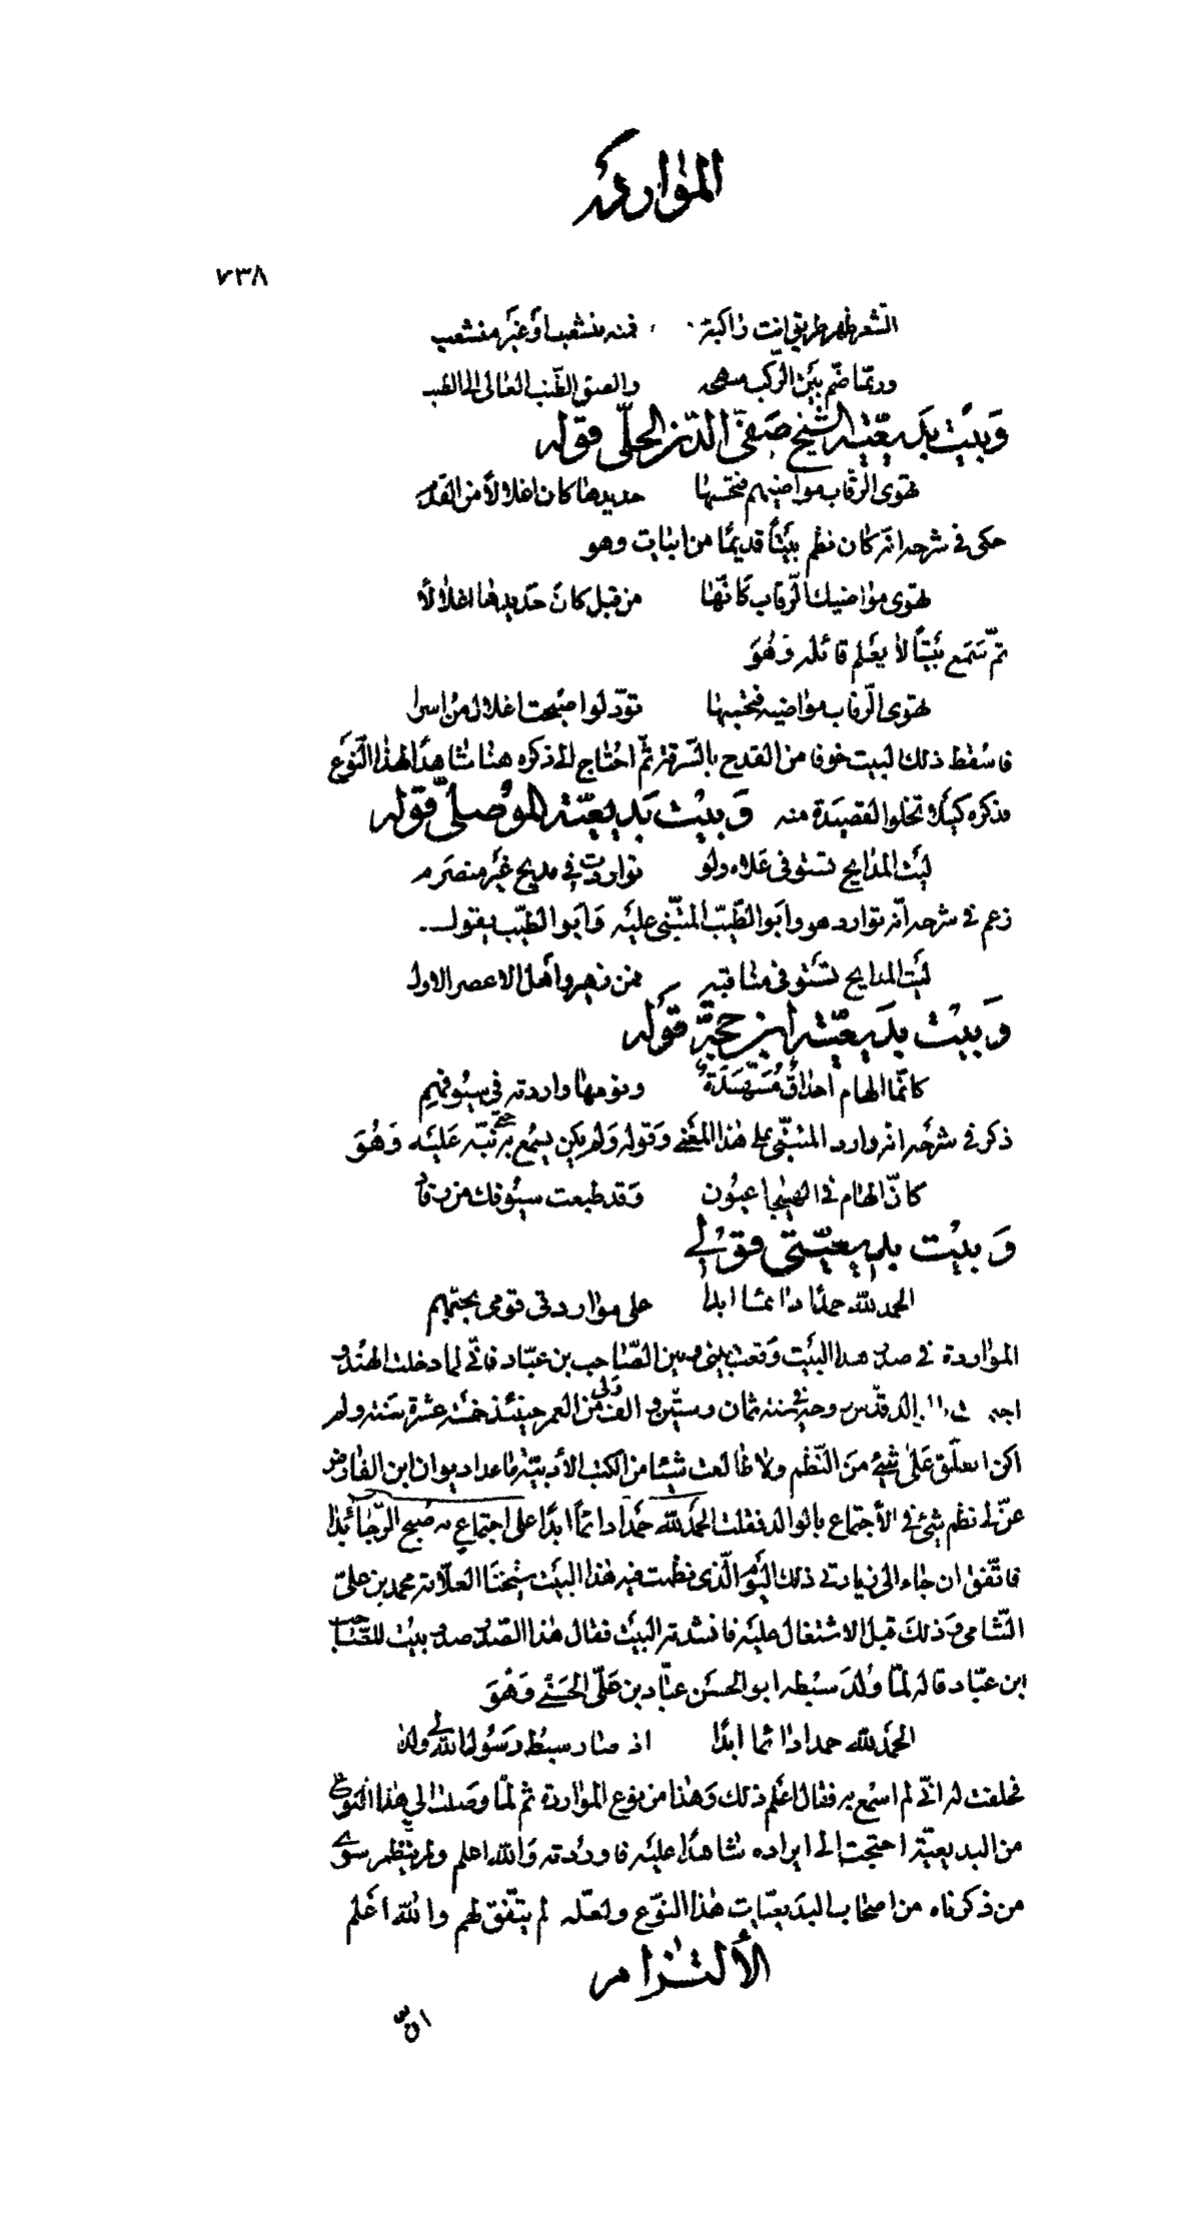 المواردة
٧٣٨
الشعر ظهر طريق انت راكبه فمنه منشعب او غير منشعب
وربما ضم بين الركب منهجه والصق الطنب العالى الى الطنب
وَبيت بديعية الشيخ صَفىّ الدّين الحلّى قوله
تهوى الرقاب مواضيهم فتحسبها حديدها كان اغلالا من القدم
حكى فى شرحه انه كان نظم بيتًا قديمًا من ابيات وهو
تهوى مواضيك الرقاب كانّها من قبل كان حديدها اغلالا
ثمّ سَمع بَيتًا لا يعَلم قائله وَهُوَ
تهوى الرقاب مواضيه فتحسبها تودّ لو اصبحت اغلال من اسرا
فاسقط ذلك البيت خوفا من القدح بالسّرقة ثمّ احتاج الى ذكره هنا شاهدًا لهذا النّوع
فذكره كيلا تخلو القصيدة منه وَبيت بَديعيّة الموُصلىّ قوله
ليت المدايح تستوفى علاه ولو تواردت فى مديح غير منصرم
زعم فى شرحه انّه توارد هو وابو الطّيبّ المتنّبى عليَه وَابو الطّيب يقول
ليت المدايح تستوفى مناقبه فمن زهير واهل الاعصر الاول
وَبيت بديعيّة ابن حجّة قوله
كانّما الهام احداق مُسَهّدَة ونومها واردته فى سيوفهم
ذكر فى شرحَه انه وارد المتنبّى على هذا المعَنى وَقوله وَلم يكن يسمع به حتّى نبّه عَليَه وَهُوَ
كانّ الهام فى الهيجا عيون وَقد طبعت سيُوفك من رقاد
وَبيت بديعيّتى قوَلى
الحمد للّه حمدًا دائما ابدا على مواردتى قومى بجمّهم
المواردة فى صدر هذا البيَت وَقعت بينى وبين الصّاحب بن عبّاد فانّى لما دخلت الهند
الوالد قدّس روحه فى سنة ثمان وستّين والف ولى من العمر حينئذ خمسَ عشرة سَنة ولم
اكن اتعلّق عَلى شئ من النّظم ولا طالعت شيئا من الكتب الأدبيّة ما عدا ديوان ابن الفارض
عنّ لى نظم شئ فى الأجتماع بالوالد فقلت الحمد للّه حَمدًا دائمًا ابدًا على اجتماعٍ به صُبح الرّجا بَدَا
فاتّفق ان جاء الى زيارتى ذلك اليَوم الّذى نظمت فيه هذا البيَت شيخنا العلّامة محمد بن علىّ
الشّامى وَذلكَ قبل الاشتغال عليَه فانشدته البيَت فقال هذا الصّدر صدر بيت للصّاحب
ابن عبّاد قاله لمّا وُلد سبُطه ابو الحسَن عبّاد بن عَلىّ الحَسَنى وَهُوَ
الحمَد للّه حمدا دائما ابدًا اذ صار سبط رَسُول اللّه لى ولدا
فحلفت له انّى لم اسمع به فقال اعَلم ذلك وَهذا من نوع المواردة ثم لمّا وصَلت الى هذا النوع
من البديعيّة احتجت الى ايراده شاهدًا عليَه فاوردته وَاللّه اعلم ولم ينظم سوى
من ذكرناه من اصحاب البدَيعيّات هذا النّوع ولعلّه لم يتّفق لهم واللّه اعَلم
الألتزام